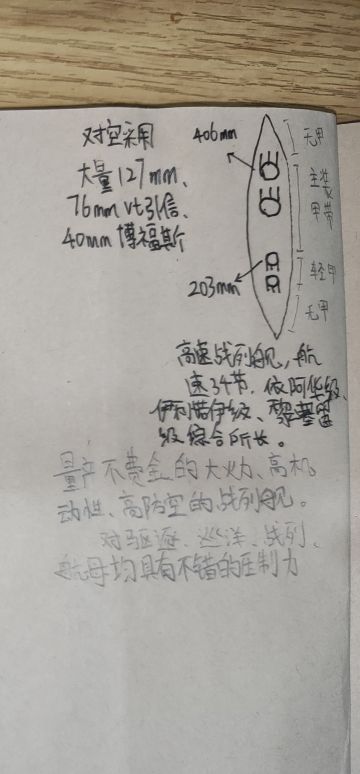 对空采用
大量127mm、
76mm vt引信、
40mm博福斯
406mm
203mm
无甲
主装
甲带
轻甲
无甲
高速战列舰，航
速34节，依阿华级、
伊利诺伊级、黎塞留
级综合所长。
量产不费金的大火力、高机
动性、高防空的战列舰。
对驱逐、巡洋、战列、
航母均具有不错的压制力